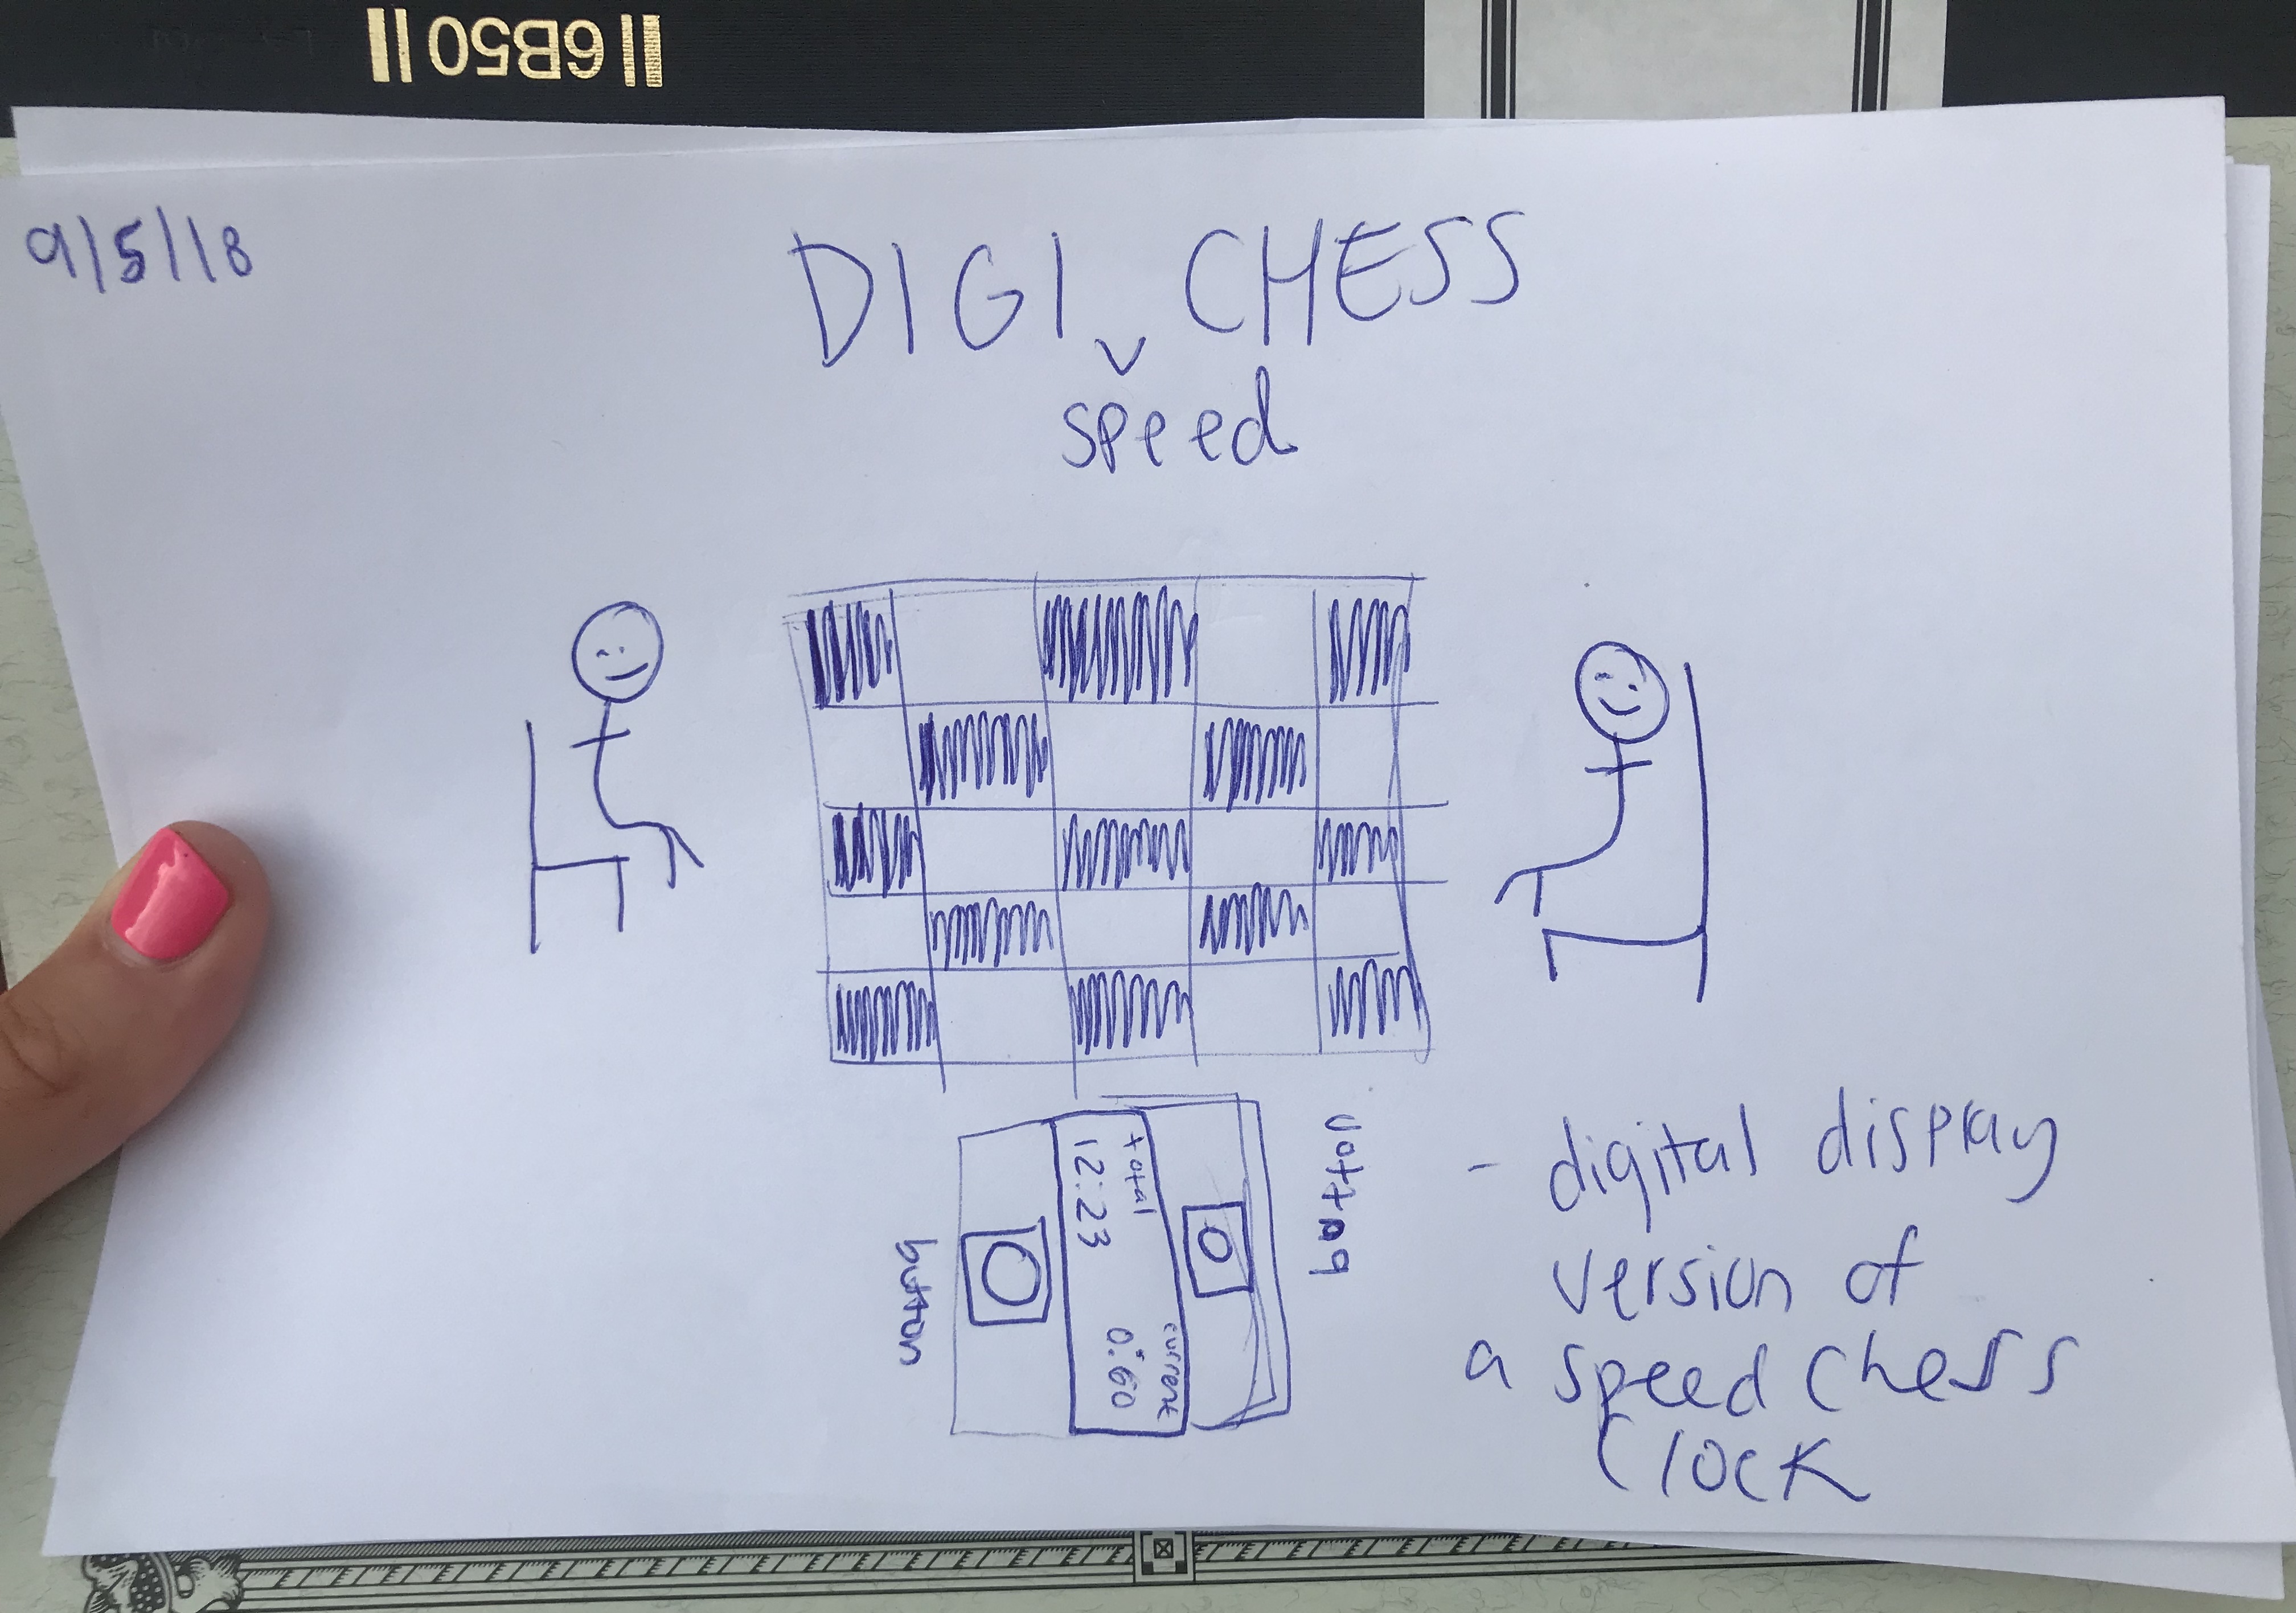 || 6B50 ||
9/5/18
DIGI ᵥ CHESS
speed
total
12:23
current
0:60
button
button
- digital display
version of
a speed chess
clock